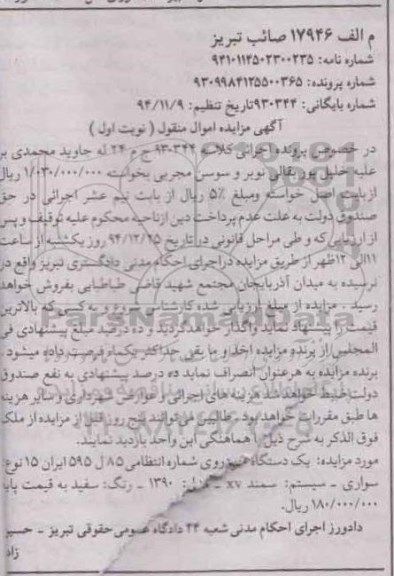 م الف ۱۷۹۴۶ صائب تبریز
شماره نامه: ۹۴۱۰۱۱۴۵۰۲۳۰۰۲۳۵
شماره پرونده: ۹۳۰۹۹۸۴۱۲۵۵۰۰۳۶۵
شماره بایگانی: ۹۳۰۳۴۴تاریخ تنظیم: ۹۴/۱۱/۹
آگهی مزایده اموال منقول ( نوبت اول )
در خصوص پرونده اجرائی کلاسه ۹۳۰۳۴۴ ج م ۲۴ له جاوید محمدی بر
علیه خلیل پور بقالی نوبر و سوسن مجربی بخواسته ۱/۰۳۰/۰۰۰/۰۰۰ ریال
ازبابت اصل خواسته ومبلغ ۵٪ ریال از بابت نیم عشر اجرائی در حق
صندوق دولت به علت عدم پرداخت دین ازناحیه محکوم علیه توقیف و پس
از ارزیابی که و طی مراحل قانونی در تاریخ ۹۴/۱۲/۲۵ روز یکشنبه از ساعت
۱۱الی ۱۲ظهر از طریق مزایده دراجرای احکام مدنی دادگستری تبریز واقع در
نرسیده به میدان آذربایجان مجتمع شهید قاضی طباطبایی بفروش خواهد
رسید . مزایده از مبلغ ارزیابی شده کارشناسی و به کسی که بالاترین
قیمت را پیشنهاد نماید واگذار خواهد گردید و ده درصد مبلغ پیشنهادی فی
المجلس از برنده مزایده اخذ و ما بقی حداکثر یکماه فرصت داده میشود .
برنده مزایده به هرعنوان انصراف نماید ده درصد پیشنهادی به نفع صندوق
دولت ضبط خواهد شد هزینه های اجرائی و عوارض شهرداری و سایر هزینه
ها طبق مقررات خواهد بود . طالبین می توانند پنج روز قبل از مزایده از ملک
فوق الذکر به شرح ذیل با هماهنگی این واحد بازدید نمایند.
مورد مزایده: یک دستگاه خودروی شماره انتظامی ۸۵ ل ۵۹۵ ایران ۱۵ نوع:
سواری - سیستم: سمند xv - مدل: ۱۳۹۰ - رنگ: سفید به قیمت پایه
۱۸۰/۰۰۰/۰۰۰ ریال.
دادورز اجرای احکام مدنی شعبه ۲۴ دادگاه عمومی حقوقی تبریز - حسین
زاد
ParsNamadData